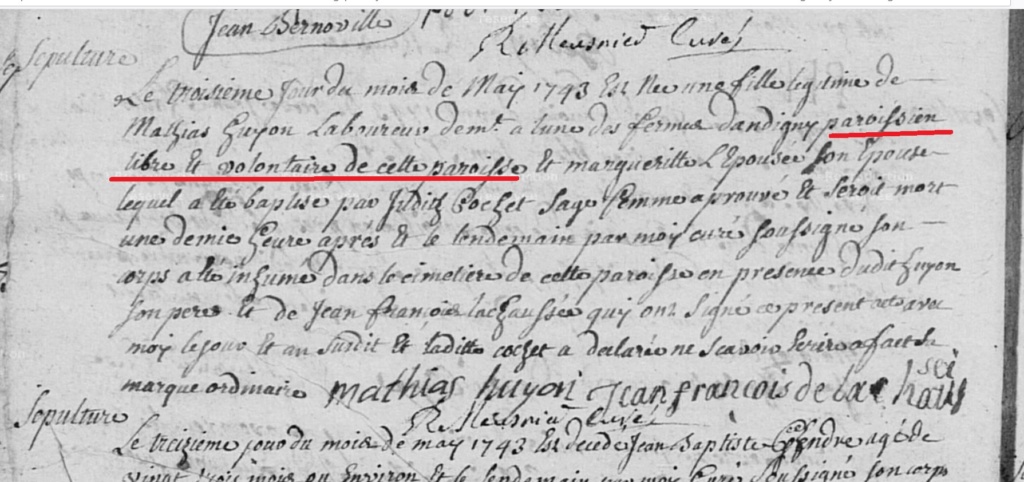 Jean Bernoville
R. Meusnier Curé
Sepulture
Le troisieme jour du mois de May 1743 Est Nee une fille legitime de
Mathias huyon Laboureur demt. a lune des fermes dandigny paroissien
libre et volontaire de cette paroisse et margueritte Lepousée son Epouse
lequel a Eté baptisé par Judith Cochet Sage femme aprouvé Et Seroit mort
une demie heure aprés Et le lendemain par moy curé soussigné son
corps a Eté inhumé dans le cimetiere de cette paroisse en presence dudit huyon
son pere Et de Jean françois lachaussée quy ont Signé ce present acte avec
moy le jour Et an Susdit Et laditte cochet a declarée ne scavoir Ecrire a fait Sa
marque ordinaire mathias huyon Jean francois de la chaus
sei
R. Meusnier Curé
Sepulture
Le treizieme jour du mois de may 1743 Est decedé Jean Baptiste agé de
vingt trois mois ou Environ Et le lendemain par moy Curé Soussigné son corps